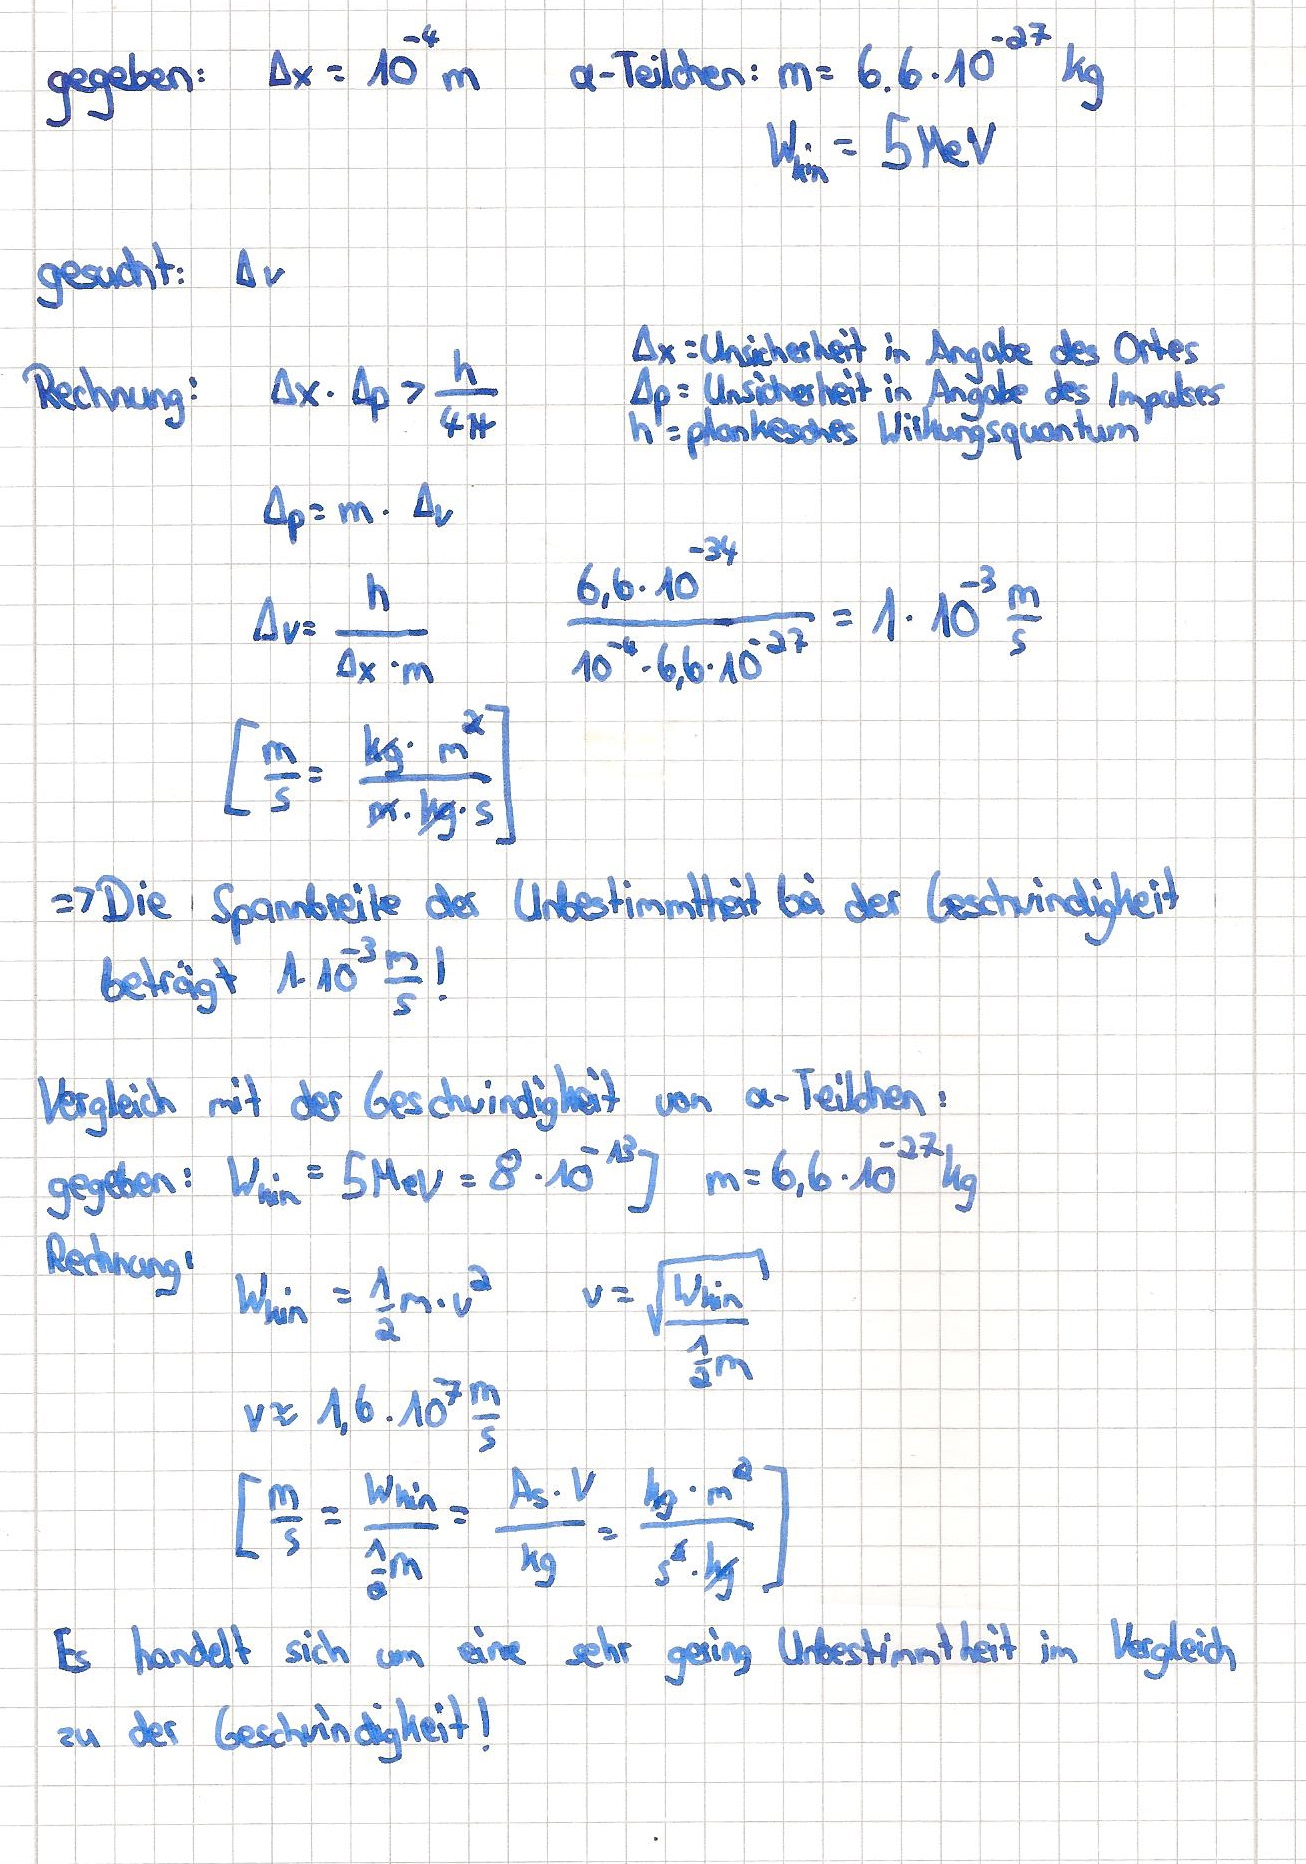 gegeben: Δx = 10⁻⁴ m α-Teilchen: m = 6,6 · 10⁻²⁷ kg
W_kin = 5 MeV
gesucht: Δv
Rechnung: Δx · Δp > h/4π
Δx = Unsicherheit in Angabe des Ortes
Δp = Unsicherheit in Angabe des Impulses
h = plankesches Wirkungsquantum
Δp = m · Δv
Δv = h/(Δx · m) (6,6 · 10⁻³⁴)/(10⁻⁴ · 6,6 · 10⁻²⁷) = 1 · 10⁻³ m/s
[m/s = (kg · m²)/(m · kg · s)]
=> Die Spannbreite der Unbestimmtheit bei der Geschwindigkeit
beträgt 1 · 10⁻³ m/s!
Vergleich mit der Geschwindigkeit von α-Teilchen:
gegeben: W_kin = 5 MeV = 8 · 10⁻¹³ J m = 6,6 · 10⁻²⁷ kg
Rechnung:
W_kin = 1/2 m · v² v = √(W_kin/(1/2 m))
v ≈ 1,6 · 10⁷ m/s
[m/s = W_kin/(1/2 m) = (As · V)/kg = (kg · m²)/(s² · kg)]
Es handelt sich um eine sehr gering Unbestimmtheit im Vergleich
zu der Geschwindigkeit!